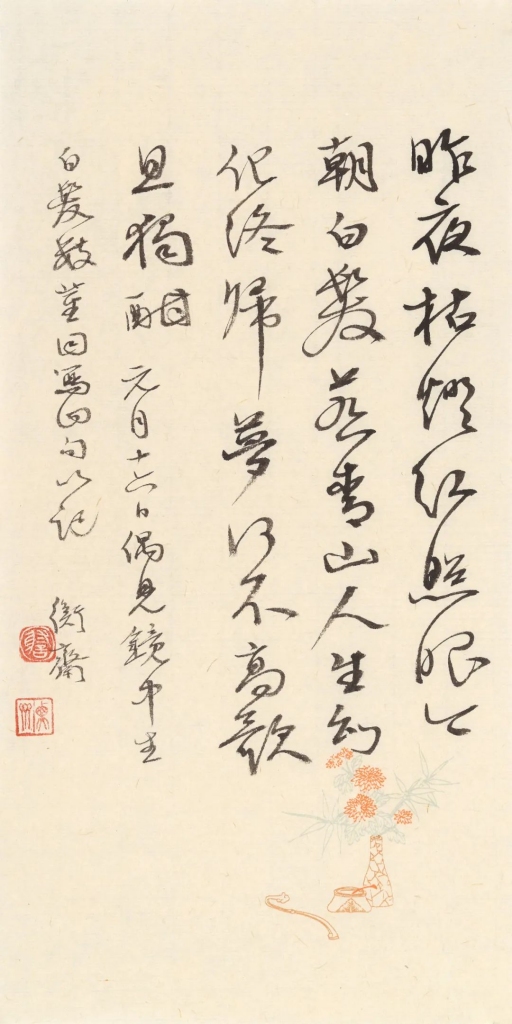 昨夜枯燈红照眼今
朝白发羞青山人生幻
化终歸夢何不高歌
且獨酣 元月十六日偶见鏡中生
白发数莖因写四句以記 衡齋